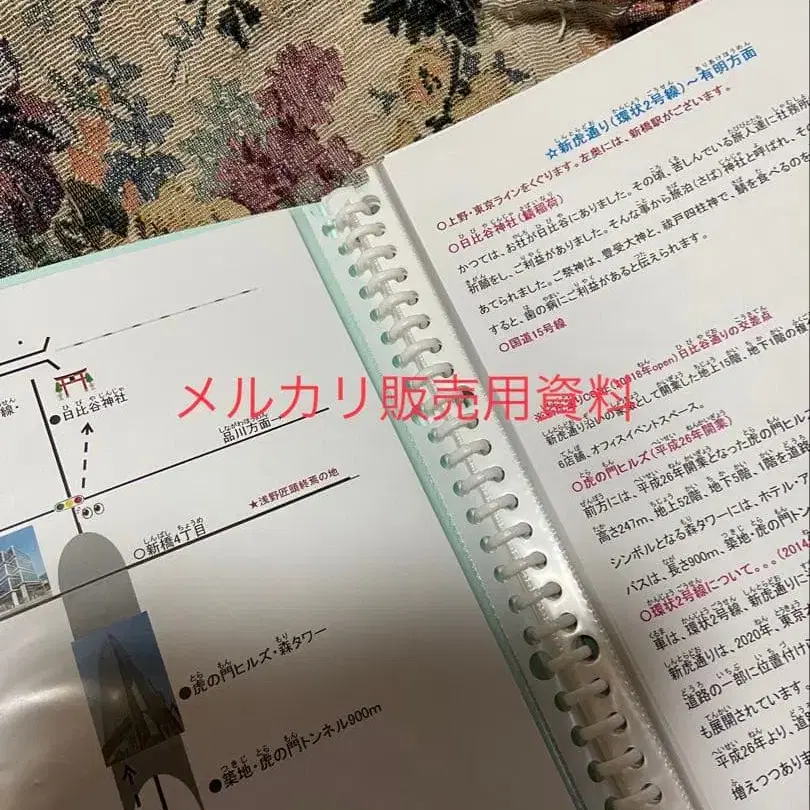 メルカリ販売用資料
日比谷神社
品川方面
★浅野匠頭終焉の地
○新橋4丁目
●虎の門ヒルズ・森タワー
●築地・虎の門トンネル900m
☆新虎通り(環状2号線)~有明方面
○上野・東京ラインをくぐります。左奥には、新橋駅がございます。
○日比谷神社(鯖稲荷)
かつては、お社が日比谷にありました。その頃、苦しんでいる旅人達に社務
祈願をし、ご利益がありました。そんな事から旅泊(さば)神社と呼ばれ、
あてられました。ご祭神は、豊受大神と、祓戸四柱神で、鯖を食べるの
すると、歯の病にご利益があると伝えられます。
○国道15号線
(2018年open)日比谷通りの交差点
新虎通り沿いの
として開業した地上15階、地下1階の
6店舗、オフィスイベントスペース。
○虎の門ヒルズ(平成26年開業)
前方には、平成26年開業となった虎の門ヒル
高さ247m、地上52階、地下5階、1階を道路
シンボルとなる森タワーには、ホテル・ア
バスは、長さ900m、築地・虎の門トン
○環状2号線について。。。(2014
車は、環状2号線、新虎通りに
新虎通りは、2020年、東京オ
道路の一部に位置付け
も展開されています。
平成26年より、道
増えつつありま